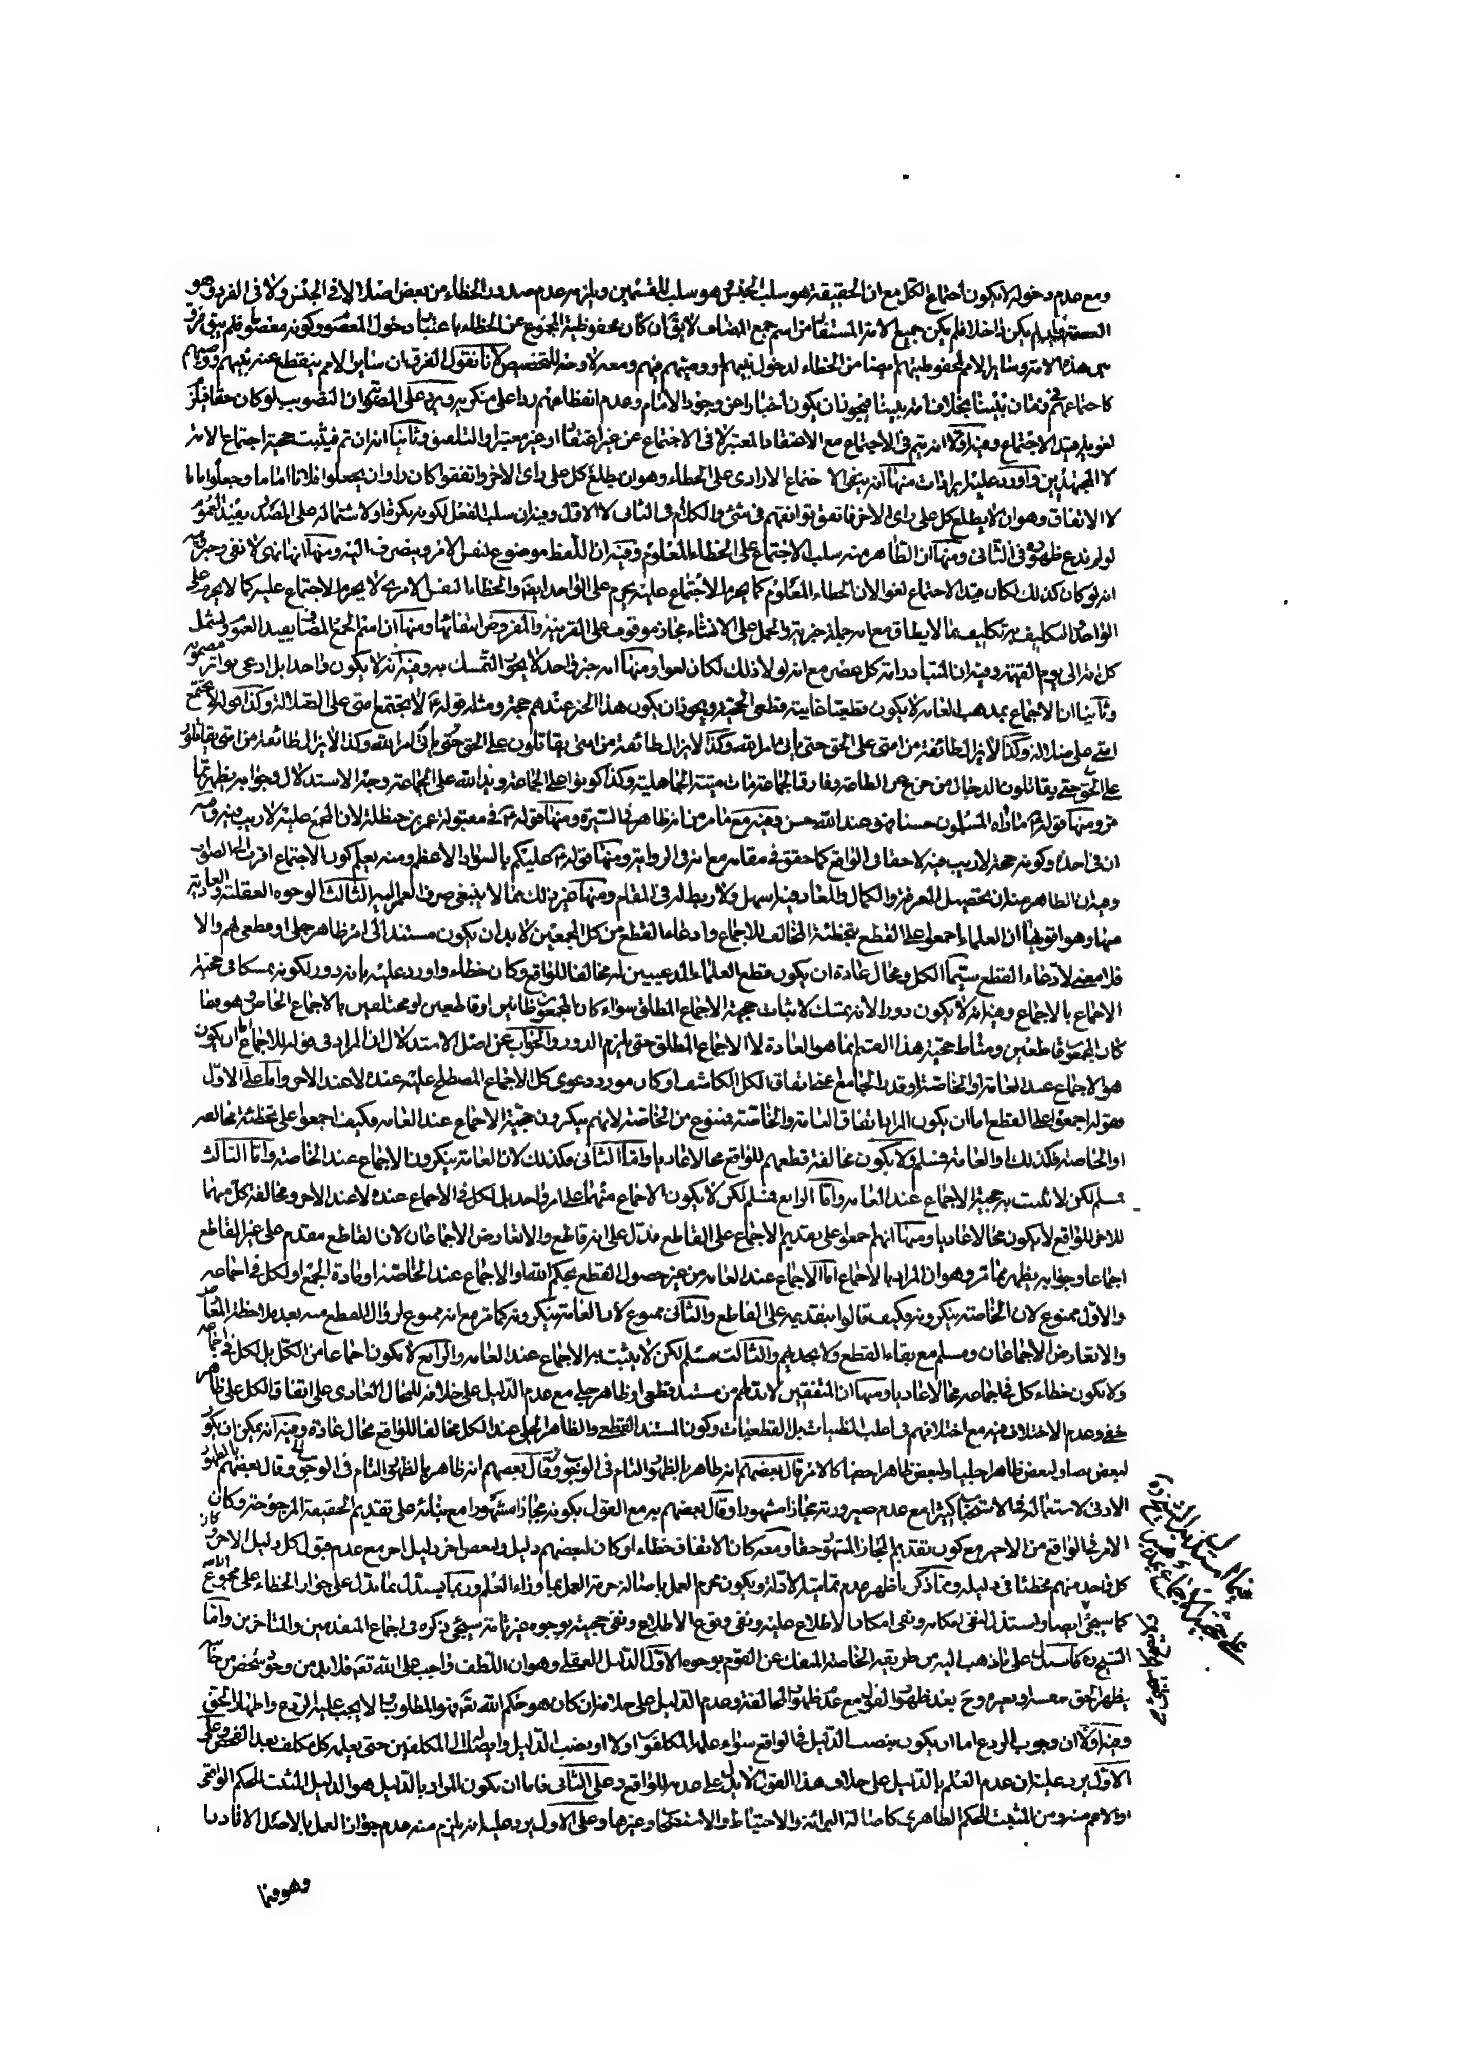 ومع عدم دخوله لا يكون اجتماع الكل مع ان الحقيقة هو سلب الجنس هو سلب للقسمين ويلزمه عدم صدور الخطاء من بعض اصلا لا في الجنس ولا في الفرد وهو
لم يكن داخلا فلم يكن جميع الامة المستفاد من اسم جمع المضاف لا يقال ان كان محفوظية المجموع عن الخطاء باعتبار دخول المعصوم وكونه معصوما فلم يبق فرق
بين هذه الامة وسائر الامم لمحفوظيتهم ايضا من الخطاء لدخول نبيهم او وصيهم فيهم ومعه لا وجه للتخصيص لانا نقول الفرق ان سائر الامم ينقطع عنه نبيهم ووصيهم
كاجتماعهم في زمان نبينا بخلاف امة نبينا فيجوز ان يكون اخبارا عن وجود الامام وعدم انقطاعه عنهم ردا على منكريه ويرد على المصوبة ان التصويب لو كان حقا فيلزم
لغوية قيد الاجتماع وفيه اولا انه يتم في الاجتماع مع الاعتقاد المعتبر لا في الاجتماع عن غير اعتقاد او غير معتبر او التلفيق وثانيا انه ان تم فيثبت حجية اجتماع الامة
لا المجتهدين واورد عليه ايرادات منها انه ينفي الاجتماع الارادي على الخطاء وهو ان يطلع كل على راي الاخر واتفقوا كان ارادوا ان يجعلوا فلانا اماما وجعلوا اماما
لا الاتفاقي وهو ان لا يطلع كل على راي الاخر فاتفق توافقهم في شيء والكلام في الثاني لا الاول وفيه ان سلب الفعل لكونه نكرة او لاشتماله على المصدر يفيد العموم
لو لم ندع ظهوره في الثاني ومنها ان الظاهر منه سلب الاجتماع على الخطاء المعلوم وفيه ان اللفظ موضوع لنفس الامر وينصرف اليه ومنها انها نهي لا نفي وجوابه
انه لو كان كذلك لكان قيد الاجتماع لغوا لان الخطاء المعلوم كما يحرم الاجتماع عليه يحرم على الواحد ايضا والخطاء النفس الامري لا يحرم الاجتماع عليه كما لا يحرم على
الواحد التكليف به تكليف بما لا يطاق مع انه جملة خبرية والحمل على الانشاء مجاز موقوف على القرينة والمفروض انتفائها ومنها ان اسم الجمع المضاف يفيد العموم ويشمل
كل امة الى يوم القيمة وفيه ان المتبادر امة كل عصر مع انه لو لا ذلك لكان لغوا ومنها انه خبر واحد لا يجوز التمسك به وفيه انه لا يكون واحدا بل ادعي تواتر مضمونه
وثانيا ان الاجماع بمذهب العامة لا يكون قطعيا غايته قطعي الحجية ويجوز ان يكون هذا الخبر عندهم حجة ومثله قوله ع لا يجتمع امتي على الضلالة وكذا قوله لا يجتمع
امتي على ضلالة وكذا لا يزال طائفة من امتي على الحق حتى يأتي امر الله وكذا لا يزال طائفة من امتي يقاتلون على الحق حتى يأتي امر الله وكذا لا يزال طائفة من امتي يقاتلون
على الحق حتى يقاتلون الدجال من خرج عن الطاعة وفارق الجماعة مات ميتة الجاهلية وكذا كونوا على الجماعة ويد الله على الجماعة وجه الاستدلال وجوابه يظهر مما
مر ومنها قوله ع ما راه المسلمون حسنا فهو عند الله حسن وفيه مع ما مر من انه ظاهر في السيرة ومنها قوله ع في مقبولة عمر بن حنظلة لان المجمع عليه لا ريب فيه وفيه
انه خبر واحد وكونه حجة لا ريب فيه لا خفاء في الواقع كما حقق في مقامه مع انه في الرواية ومنها قوله ع عليكم بالسواد الاعظم ومنه يعلم كون الاجتماع اقرب الى الصواب
وفيه ان الظاهر منه ان تحصيل المعرفة والكمال والمعاد فيه اسهل ولا ربط له في المقام ومنها غير ذلك مما لا ينبغي صرف العمر اليه الثالث الوجوه العقلية والعادية
منها وهو اقويها ان العلماء اجمعوا على القطع بتخطئة المخالف للاجماع وادعاء القطع من كل المجمعين لا بد ان يكون مستندا الى امر ظاهر جلي او قطعي لهم والا
فلا معنى لادعاء القطع سيما الكل ومحال عادة ان يكون قطع العلماء المدعيين له مخالفا للواقع وكان خطاء واورد عليه بانه دور لكونه تمسكا في حجية
الاجماع بالاجماع وفيه انه لا يكون دورا لانه يتمسك لاثبات حجية الاجماع المطلق سواء كان المجمعون ظانين او قاطعين او مختلفين بالاجماع الخاص وهو فيما
كان المجمعون قاطعين ومناط حجية هذا القسم انما هو العادة لا الاجماع المطلق حتى يلزم الدور والجواب عن اصل الاستدلال ان المراد في قوله للاجماع اما ان يكون
هو الاجماع عند العامة او الخاصة او قدر الجامع اعني اتفاق الكل الكاشف او كان مورد دعوى كل الاجماع المصطلح عليه عنده لا عند الاخر واما على الاول
وقوله اجمعوا على القطع اما ان يكون المراد اتفاق العامة والخاصة فممنوع من الخاصة لانهم ينكرون حجية الاجماع عند العامة فكيف اجمعوا على تخطئة مخالفه
او الخاصة فكذلك او العامة فمسلم ولا يكون مخالفة قطعهم للواقع محالا عاديا واما الثاني فكذلك لان العامة ينكرون الاجماع عند الخاصة واما الثالث
فمسلم لكن لا يثبت به حجية الاجماع عند العامة واما الرابع فمسلم لكن لا يكون الاجماع منهما على امر واحد بل لكل في الاجماع عنده لا عند الاخر ومخالفة كل منهما
للاخر للواقع لا يكون محالا عاديا ومنها انهم اجمعوا على تقديم الاجماع على القاطع فدل على انه قاطع والا لتعارض الاجماعان لان القاطع مقدم على غير القاطع
اجماعا وجوابه يظهر مما مر وهو ان المراد بالاجماع اما الاجماع عند العامة من غير حصول القطع بحكم الله او الاجماع عند الخاصة او مادة الجمع او لكل في اجماعه
والاول ممنوع لان الخاصة ينكرونه فكيف قالوا بتقديمه على القاطع والثاني ممنوع لان العامة ينكرونه كما مر مع انه ممنوع لزوال القطع منه بعد ملاحظة المعارض
والا لتعارض الاجماعان ومسلم مع بقاء القطع ولا يجديهم والثالث مسلم لكن لا يثبت به الاجماع عند العامة والرابع لا يكون اجماعا من الكل بل لكل في اجماعه
ولا يكون خطاء كل في اجماعه محالا عاديا ومنها ان المتفقين لا بد لهم من مستند قطعي او ظاهر جلي مع عدم الدليل على خلافه للمحال العادي على اتفاق الكل على ظاهر
خفي وعدم الاختلاف فيه مع اختلافهم في اغلب الظنيات بل القطعيات وكون المستند القطعي والظاهر الجلي عند الكل مخالفا للواقع محال عادة وفيه انه يمكن ان يكون
لبعض نصا ولبعض ظاهرا جليا ولبعض ظاهرا خفيا كالامر قال بعضهم انه ظاهر بالظهور التام في الوجوب وقال بعضهم انه ظاهر بالظهور التام في الوجوب وقال بعضهم بالظهور
الادنى لاستعماله في الاستحباب كثيرا مع عدم صيرورته مجازا مشهورا وقال بعضهم به مع القول بكونه مجازا مشهورا مع بنائه على تقديم الحقيقة المرجوحة وكان
الامر في الواقع من الاخير مع كون تقديم المجاز المشهور حقا ومعه كان الاتفاق خطاء او كان لبعضهم دليل ولبعض اخر دليل اخر مع عدم قبول كل دليل الاخر كان
كل واحد منهم مخطئا في دليله ومما ذكر يظهر عدم تمامية الادلة ويكون حرم العمل باصالة حرمة العمل بما وراء العلم وربما يستدل بما يدل على جواز الخطاء على مجموع الامة
كما سيجيء ايضا واستدل لنفي امكانه ونفي امكان الاطلاع عليه ونفي وقوع الاطلاع ونفي حجيته بوجوه غير تامة سيجيء ذكره في اجماع المتقدمين والمتاخرين واما
الشيخ ره فاستدل على ما ذهب اليه من طريقه الخاصة المنفك عن القوم بوجوه الاول الدليل العقلي وهو ان اللطف واجب على الله تعم فلا بد من وجود شخص من جانبه
يظهر الحق بنفسه او بغيره وح بعد ظهور القول مع عدم ظهور المخالفة وعدم الدليل على خلافه ان كان هو حكم الله تعم فهو المطلوب والا يجب عليه الردع واظهار الحق
وفيه اولا ان وجوب الردع اما ان يكون بنصب الدليل في الواقع سواء علمه المكلفون اولا او بنصب الدليل وايصاله الى المكلفين حتى يعلمه كل مكلف بعد الفحص وعلى
الاول يرد عليه ان عدم العلم بالدليل على خلاف هذا القول لا يدل على عدمه للواقع وعلى الثاني فاما ان يكون المراد بالدليل هو الدليل المثبت للحكم الواقعي
او الاعم منه ومن المثبت للحكم الظاهري كاصالة البرائة والاحتياط والاستصحاب وغيرها وعلى الاول يرد عليه انه يلزم منه عدم جواز العمل بالاصل الا نادرا
وهو مما